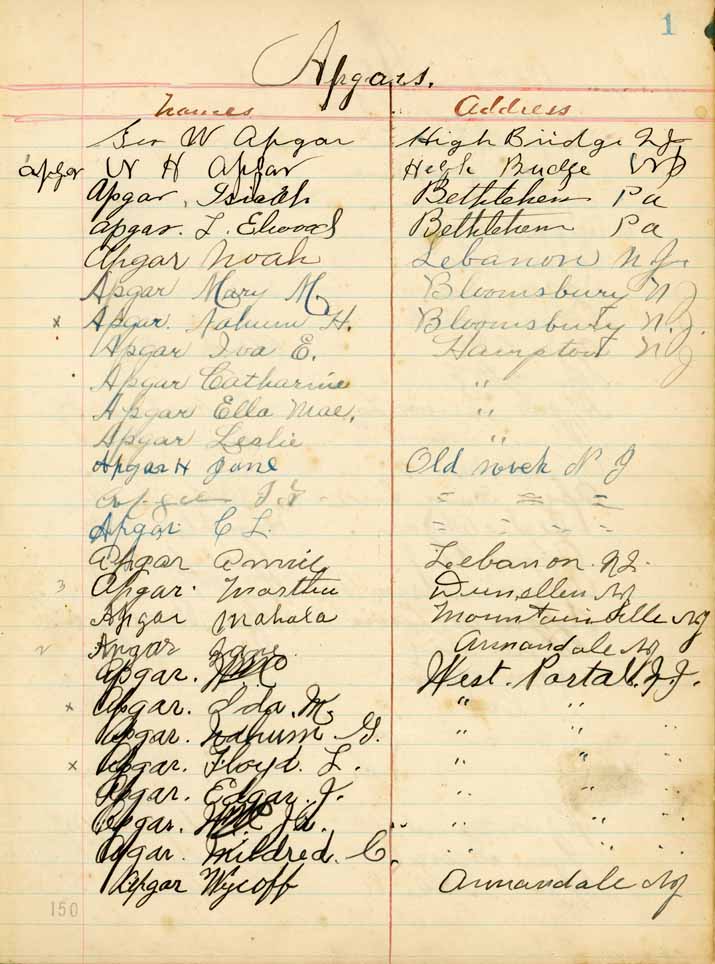 1
Apgars.
Names Address
Geo W Apgar High Bridge N.J.
apgar W H Apgar High Bridge NJ
Apgar, Isiah Bethlehem Pa
apgar. L. Elwood Bethlehem Pa
Apgar Noah Lebanon N.J.
Apgar Mary M. Bloomsbury N J
x Apgar. Nahum H. Bloomsbury N.J.
Apgar Iva E. Hampton N J
Apgar Catharine "
Apgar Ella Mae. "
Apgar Leslie "
Apgar H Jane Old N J
" " "
Apgar C L. " " " "
Apgar Annie Lebanon. N.J.
3 Apgar. Martha Dunellen NJ
Apgar Mahala Mountainville NJ
2 Apgar Jane Annandale NJ
Apgar. Wm West. Portal. N.J.
x Apgar. Ida. M. " "
Apgar. Nahum G. " " "
x Apgar. Floyd. L. " " "
Apgar. Edgar. J. " " "
Apgar. Wm Jr. " " "
Apgar. Mildred. C. " " "
Apgar Wycoff Annandale NJ
150